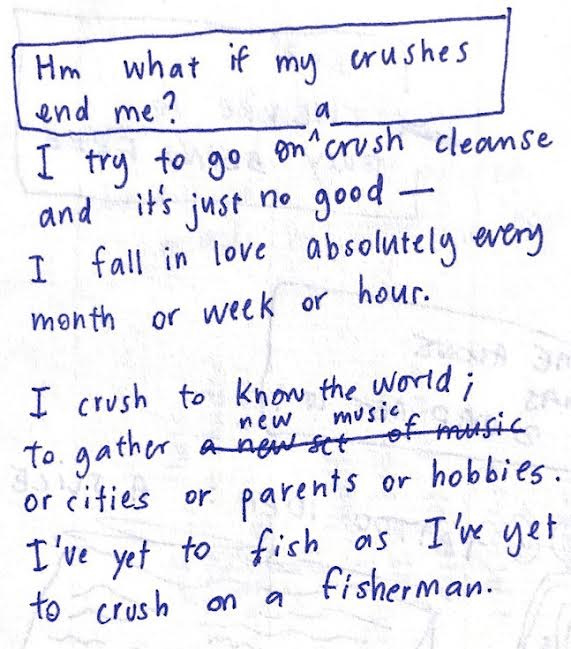 Hm what if my crushes
end me?
I try to go on a crush cleanse
and it's just no good —
I fall in love absolutely every
month or week or hour.
I crush to know the world;
new music
to gather a new set of music
or cities or parents or hobbies.
I've yet to fish as I've yet
to crush on a fisherman.